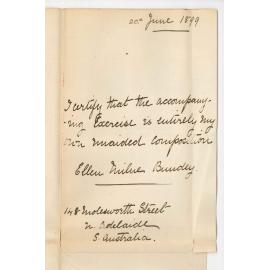 20th June 1899
I certify that the accompany-
-ing Exercise is entirely my
own unaided composition
Ellen Milne Bundey.
148 Molesworth Street
N. Adelaide
S. Australia.